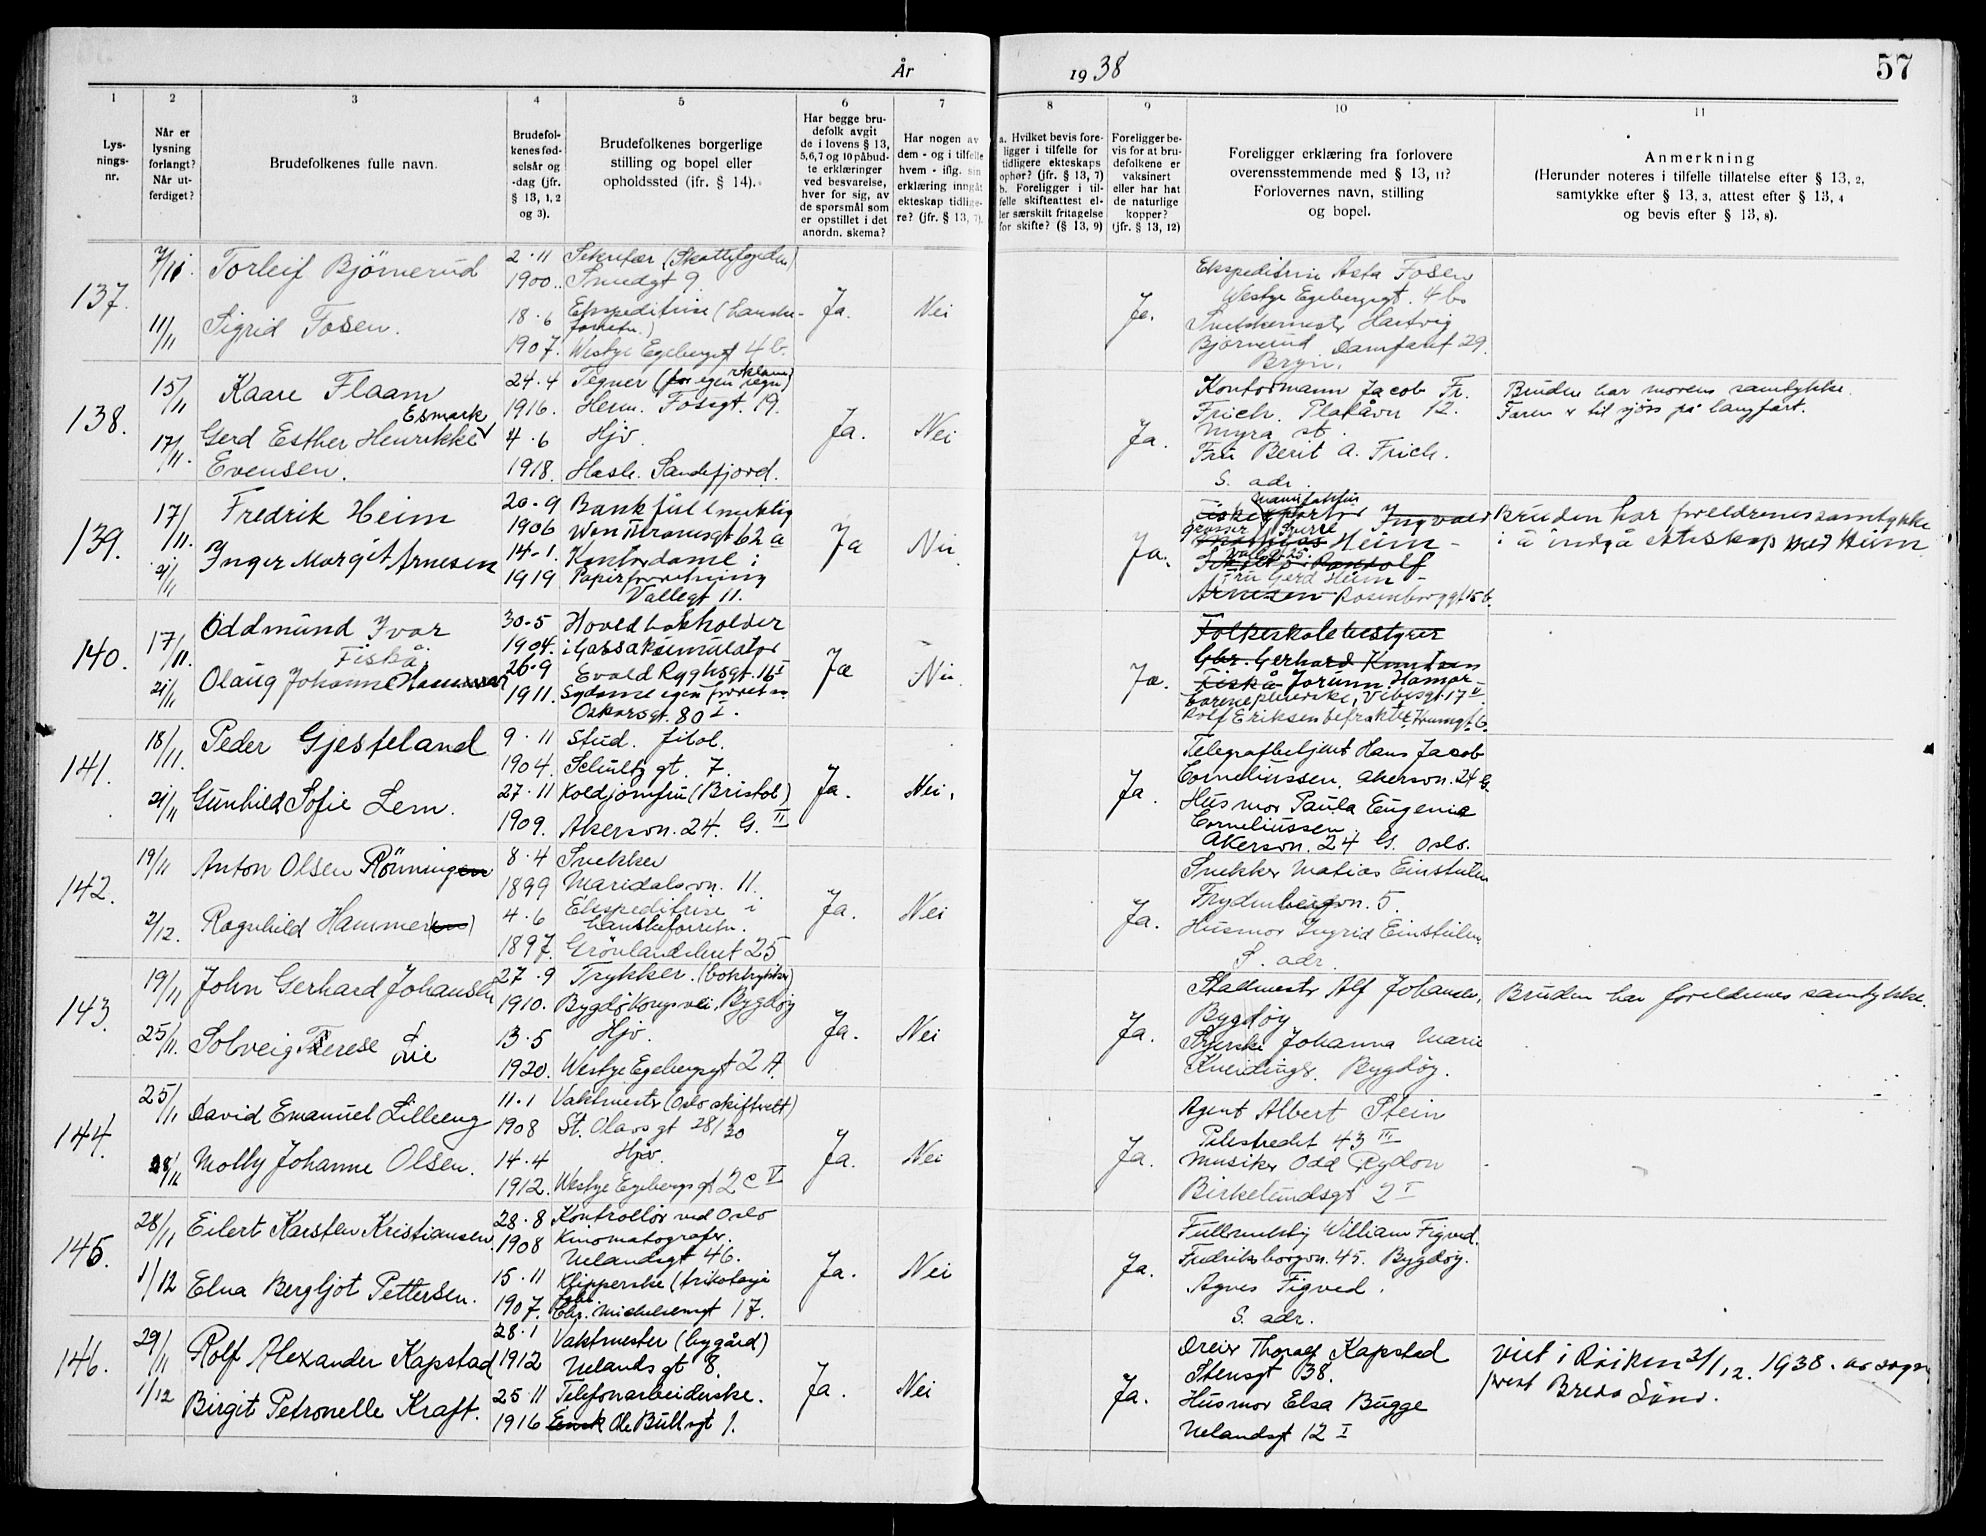 År 1938
57
1
Lys-
nings-
nr.
2
Når er
lysning
forlangt?
Når ut-
ferdiget?
3
Brudefolkenes fulle navn.
4
Brudefol-
kenes fød-
selsår og
-dag (jfr.
§ 13, 1, 2
og 3).
5
Brudefolkenes borgerlige
stilling og bopel eller
opholdssted (ifr. § 14).
6
Har begge bru-
defolk avgit
de i lovens § 13,
5,6,7 og 10 påbud-
te erklæringer
ved besvarelse,
hver for sig, av
de spørsmål som
er opstillet i det
anordn. skema?
7
Har nogen av
dem - og i tilfelle
hvem - iflg. sin
erklæring inngåt
ekteskap tidlige-
re? (jfr. § 13, 7).
8
a. Hvilket bevis fore-
ligger i tilfelle for
tidligere ekteskaps
ophør? (jfr. § 13, 7)
b. Foreligger i til-
felle skifteattest el-
ler særskilt fritagelse
for skifte? (§ 13, 9)
9
Foreligger be-
vis for at bru-
defolkene er
vaksinert
eller har hat
de naturlige
kopper?
(jfr. § 13, 12)
10
Foreligger erklæring fra forlovere
overensstemmende med § 13, 11?
Forlovernes navn, stilling
og bopel.
11
Anmerkning
(Herunder noteres i tilfelle tillatelse efter § 13, 2,
samtykke efter § 13, 3, attest efter § 13, 4
og bevis efter § 13, 8).
137.
7/11
11/11
Torleif Bjørnerud
Sigrid Fosen.
2.11
1900.
18.6
1907.
Sekretær (Skattefogden)
Smedgt 9.
Ekspeditrise (hanske-
forretn.)
Westye Egebergsgt 4 b.
Ja.
Nei
Ja.
Ekspeditrise Asta Fosen
Westye Egebergsgt. 4 b.
Snekkermester Hartvig
Bjørnerud Damfaret 29.
Bryn.
138.
15/11
17/11.
Kaare Flaam
Esmark
Gerd Esther Henrikke
Evensen.
24.4
1916.
4.6
1918.
Tegner (for egen regn)
Herm. Fossgt. 19.
Hjv.
Hasle. Sandefjord.
Ja.
Nei
Ja.
Kontormann Jacob Fr.
Frich. Plakavn 12.
Myra st.
Fru Berit A. Frich.
S. adr.
Bruden har morens samtykke.
Faren er til sjøss på langfart.
139.
17/11.
21/11
Fredrik Heim
Inger Margit Arnesen
20-9
1906
14-1.
1919
Bankfullmektig
Wm Thranesgt 62 a
Kontordame i
Papirforretning
Vallegt 11.
Ja
Nei
Ja.
Manufaktur
Ingvald
grosser Sverre
Heim -
Vallegt 25.
Randolf
Fru Gerd Heim -
Arnesen Rosenborggt 15 b.
Bruden har foreldrenes samtykke
i å indgå ekteskap med Heim
140.
17/11.
21/11
Oddmund Ivar
Fiskå.
Olaug Johanne
30-5
1904.
26-9
1911.
Hovedbokholder
i Gassakumulator
Evald Ryghsgt. 16 I
Sydame egen forretn
Oskarsgt. 80 I.
Ja
Nei
Ja.
Folkeskolebestyrer
Gbr. Gerhard Knutsen
Fiskå Jorunn Hamar-
barnepleierske, Vibesgt. 17 II
Rolf Eriksen befrakter
141.
18/11.
21/11
Peder Gjesteland
Gunhild Sofie Lem.
9.11
1904.
27.11
1909.
Stud. filol.
Schultz gt. 7.
Koldjomfru (Bristol)
Akersvn. 24. G. II
Ja.
Nei.
Ja.
Telegrafbetjent Hans Jacob
Corneliussen. Akersvn. 24 G.
Husmor Paula Eugenia
Corneliussen.
Akersvn. 24 G. Oslo.
142.
19/11
2/12.
Anton Olsen Rönningen
Ragnhild Hammer(en)
8.4
1899
4.6
1897.
Snekker
Maridalsvn. 11.
Ekspeditrise i
hanskeforretn.
Grönlandsleret 25
Ja.
Nei
Ja.
Snekker Matias Einstulen
Frydenbergvn. 5.
Husmor Ingrid Einstulen
S. adr.
143.
19/11
25/11.
John Gerhard Johansen
Solveig Terese Lie
27.9
1910.
13.5
1920.
Trykker. (boktrykker)
Bygdøkongsvei. Bygdøy
Hjv.
Westye Egebergsgt 2 A.
Ja.
Nei
Ja.
Stallmester Alf Johansen,
Bygdøy
Johanna Marie
Bygdøy.
Bruden har foreldrenes samtykke.
144.
25/11
28/11
David Emanuel Lilleeng
Molly Johanne Olsen.
11.1
1908
14.4
1912.
Vaktmester (Oslo skifterett)
St. Olavs gt 28/30
Hjv.
Westye Egebergsgt 2 c V
Ja.
Nei
Ja.
Agent Albert Stein
Pilestredet 43 III
Musiker Odd Rydon
Birkelundsgt 2 I
145.
28/11
1/12
Eilert Karsten Kristiansen
Elna Bergljot Pettersen.
28.8
1908
15.11
1907.
Kontrollør ved Oslo
Kinematografer.
Uelandsgt 46.
Klipperske (trikotasje
fabr.
Chr. Michelsensgt 17.
Ja.
Nei
Ja.
Fullmektig William Figved.
Fredriksborgvn. 45. Bygdøy.
Agnes Figved.
S. adr.
146.
29/11
1/12
Rolf Alexander Kapstad
Birgit Petronelle Kraft.
28.1
1912
25.11
1916
Vaktmester (bygård)
Uelands gt 8.
Telefonarbeiderske.
Ole Bulls gt 1.
Ja.
Nei
Ja.
Dreier Thoralf Kapstad
Stensgt 38.
Husmor Elsa Bugge
Uelandsgt 12 I
Viet i Röiken 31/12. 1938. av sogne
prest Bredo Lind.